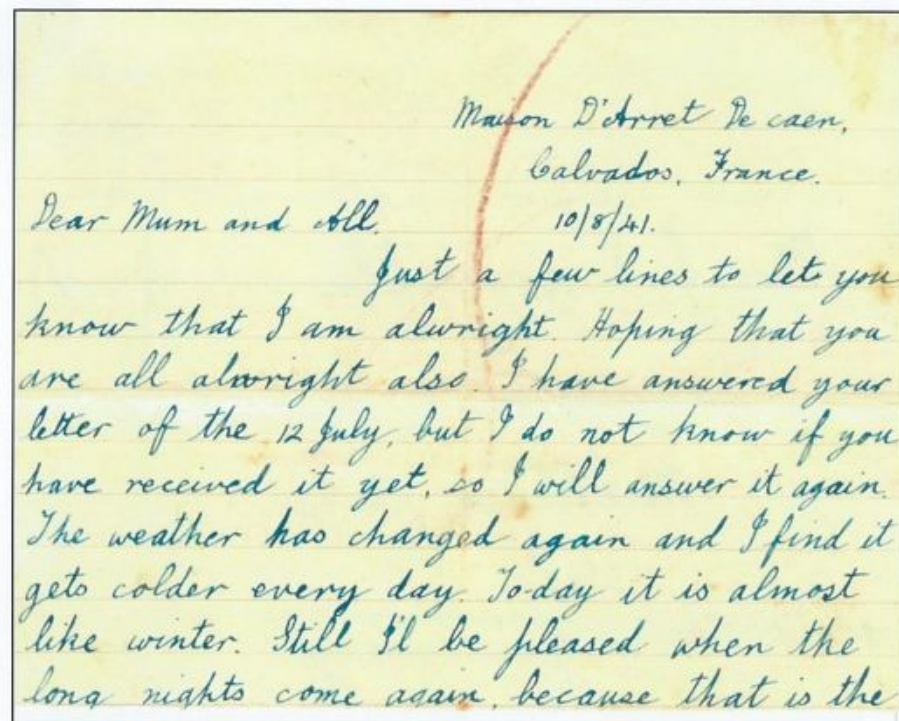 Maison D'Arret De caen,
Calvados, France.
10/8/41.
Dear Mum and All.
Just a few lines to let you
know that I am alwright. Hoping that you
are all alwright also. I have answered your
letter of the 12 July, but I do not know if you
have received it yet, so I will answer it again.
The weather has changed again and I find it
gets colder every day. To-day it is almost
like winter. Still I'l be pleased when the
long nights come again, because that is the